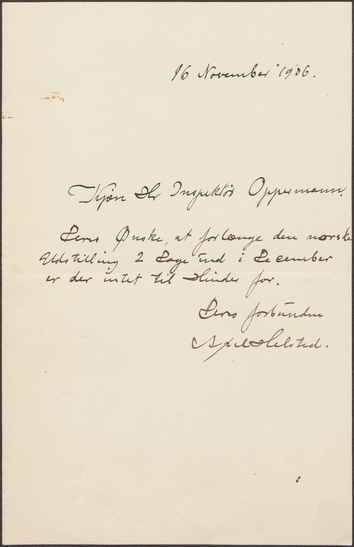 16 November 1906.
Kjære Hr Inspektør Oppermann.
Deres Ønske, at forlænge den norske
Udstilling 2 Dage ind i December
er der intet til Hinder for.
Deres forbundne
Axel Helsted.